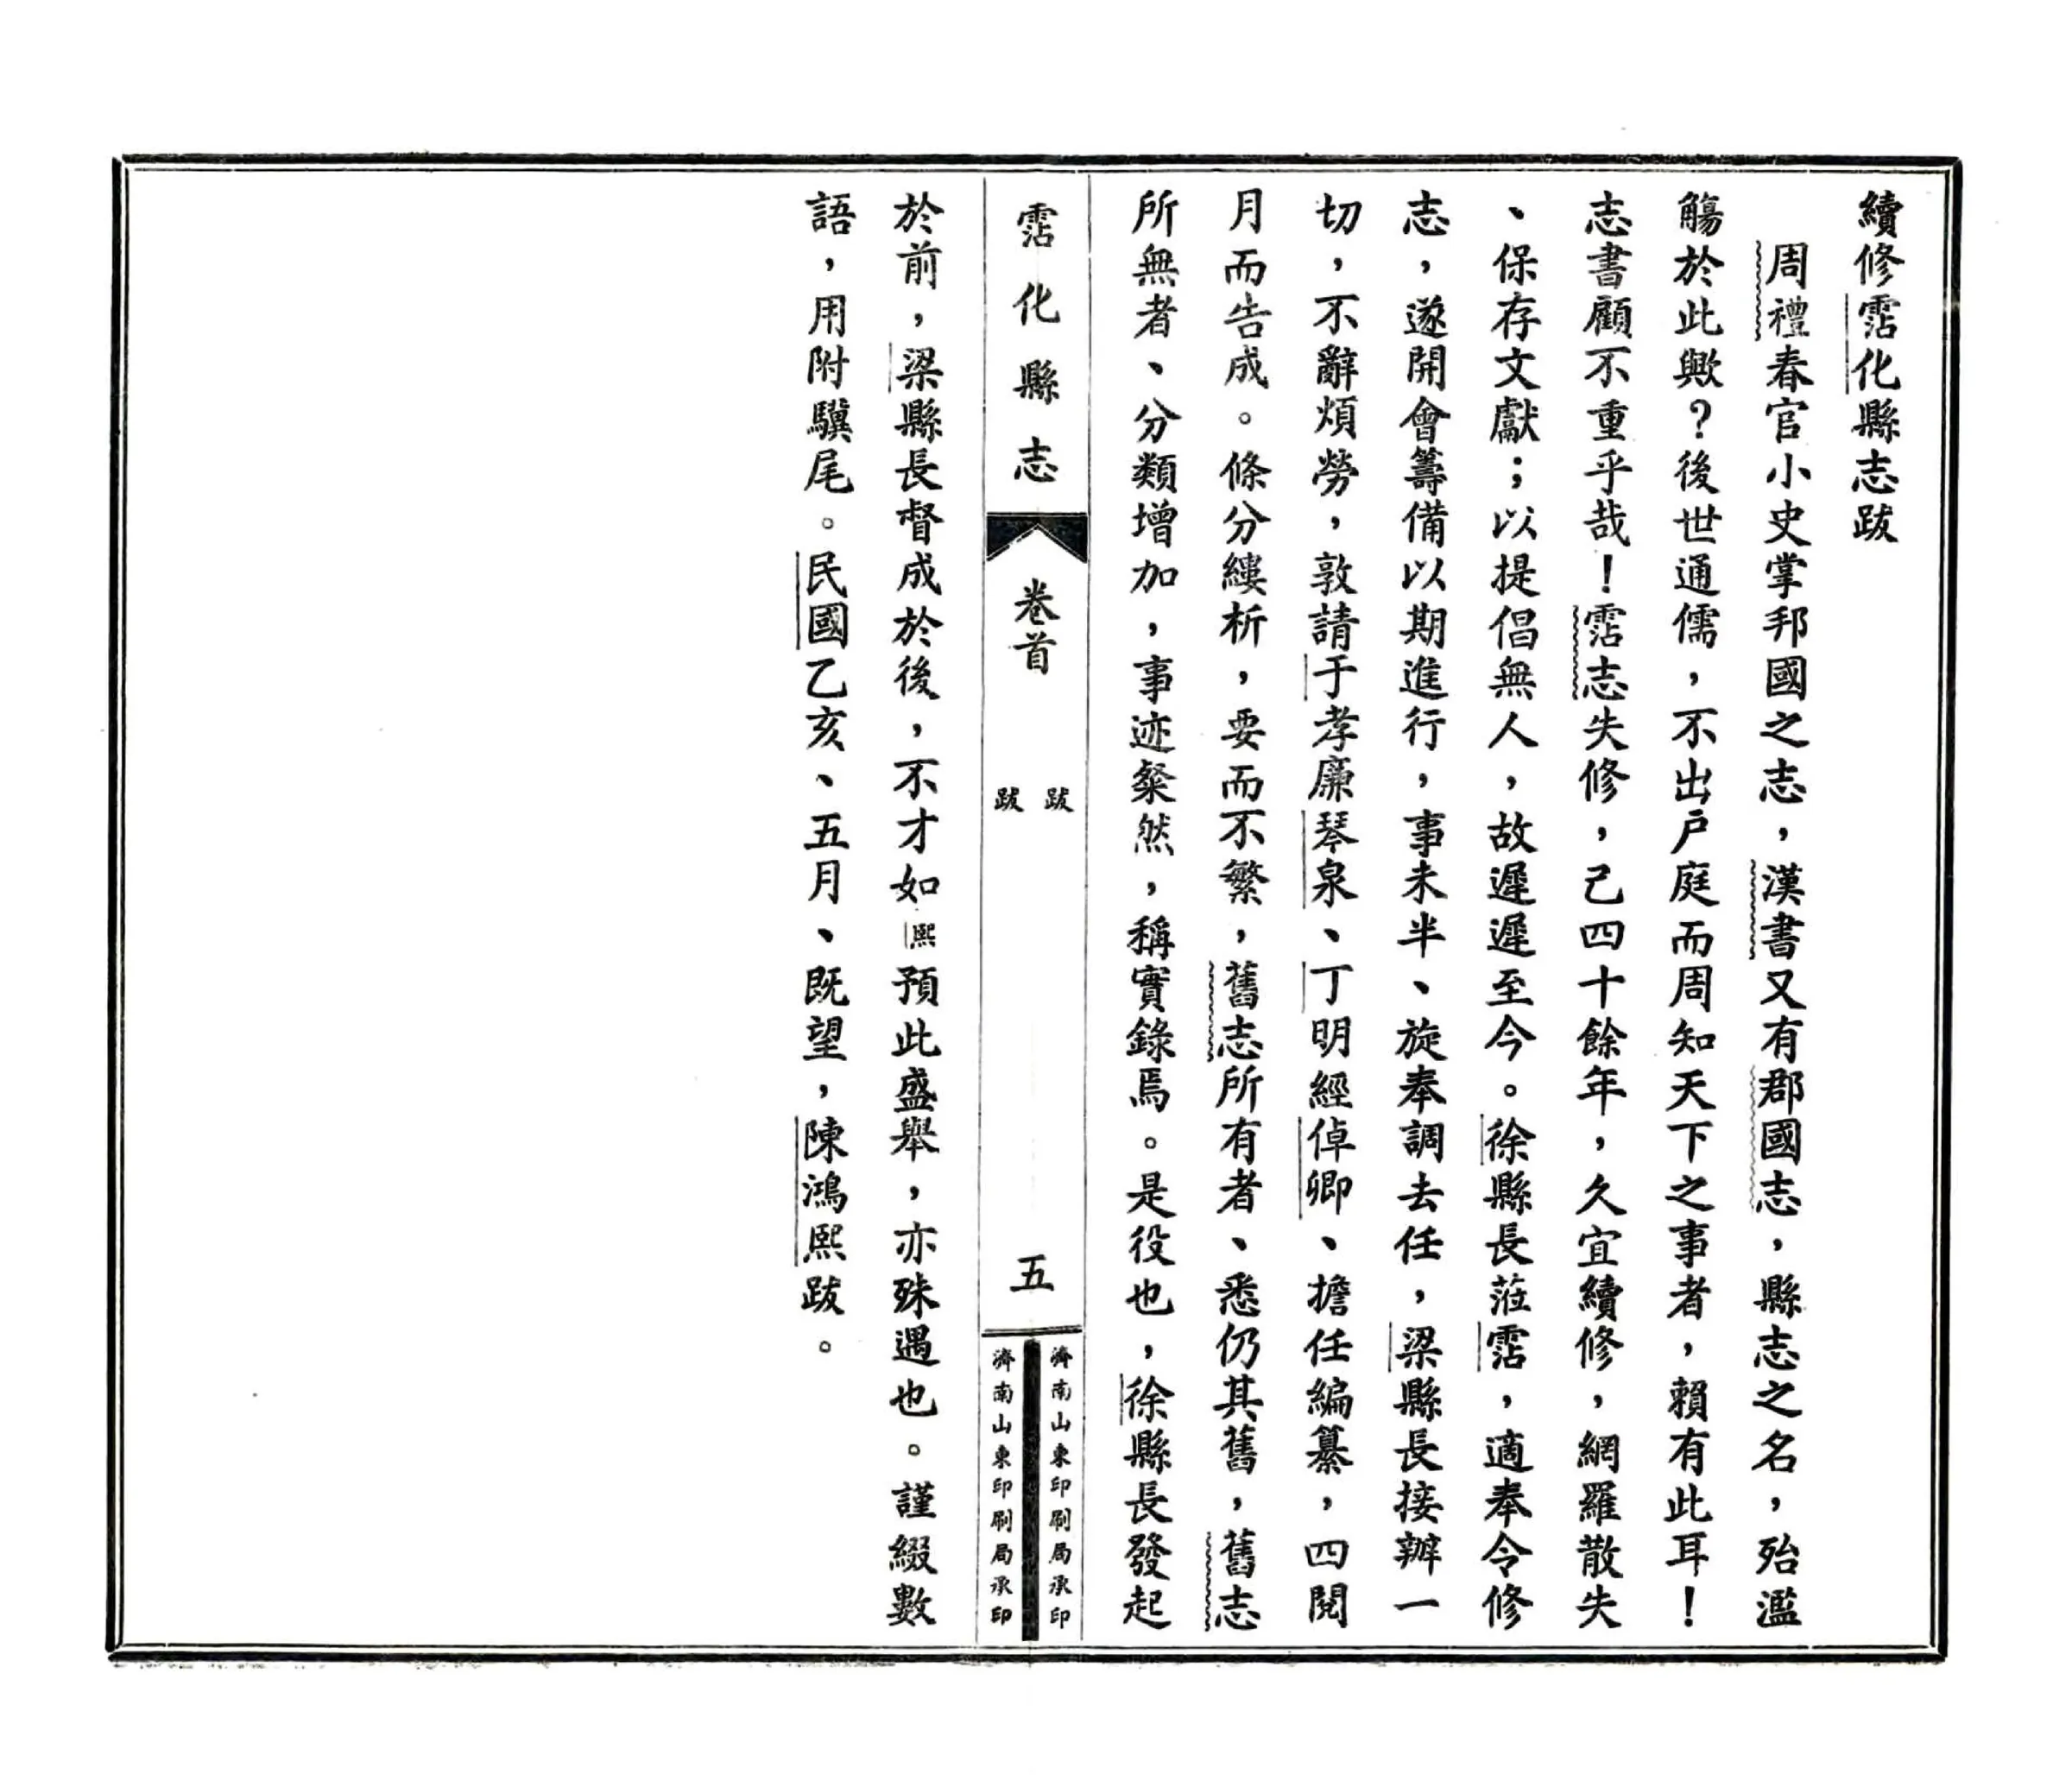 續修霑化縣志跋
周禮春官小史掌邦國之志，漢書又有郡國志，縣志之名，殆濫
觴於此歟？後世通儒，不出戶庭而周知天下之事者，賴有此耳！
志書顧不重乎哉！霑志失修，己四十餘年，久宜續修，網羅散失
、保存文獻；以提倡無人，故遲遲至今。徐縣長蒞霑，適奉令修
志，遂開會籌備以期進行，事未半、旋奉調去任，梁縣長接辦一
切，不辭煩勞，敦請于孝廉琴泉、丁明經倬卿、擔任編纂，四閱
月而告成。條分縷析，要而不繁，舊志所有者、悉仍其舊，舊志
所無者、分類增加，事迹粲然，稱實錄焉。是役也，徐縣長發起
霑化縣志
卷首
跋
跋
五
濟南山東印刷局承印
濟南山東印刷局承印
於前，梁縣長督成於後，不才如熙預此盛舉，亦殊遇也。謹綴數
語，用附驥尾。民國乙亥、五月、既望，陳鴻熙跋。